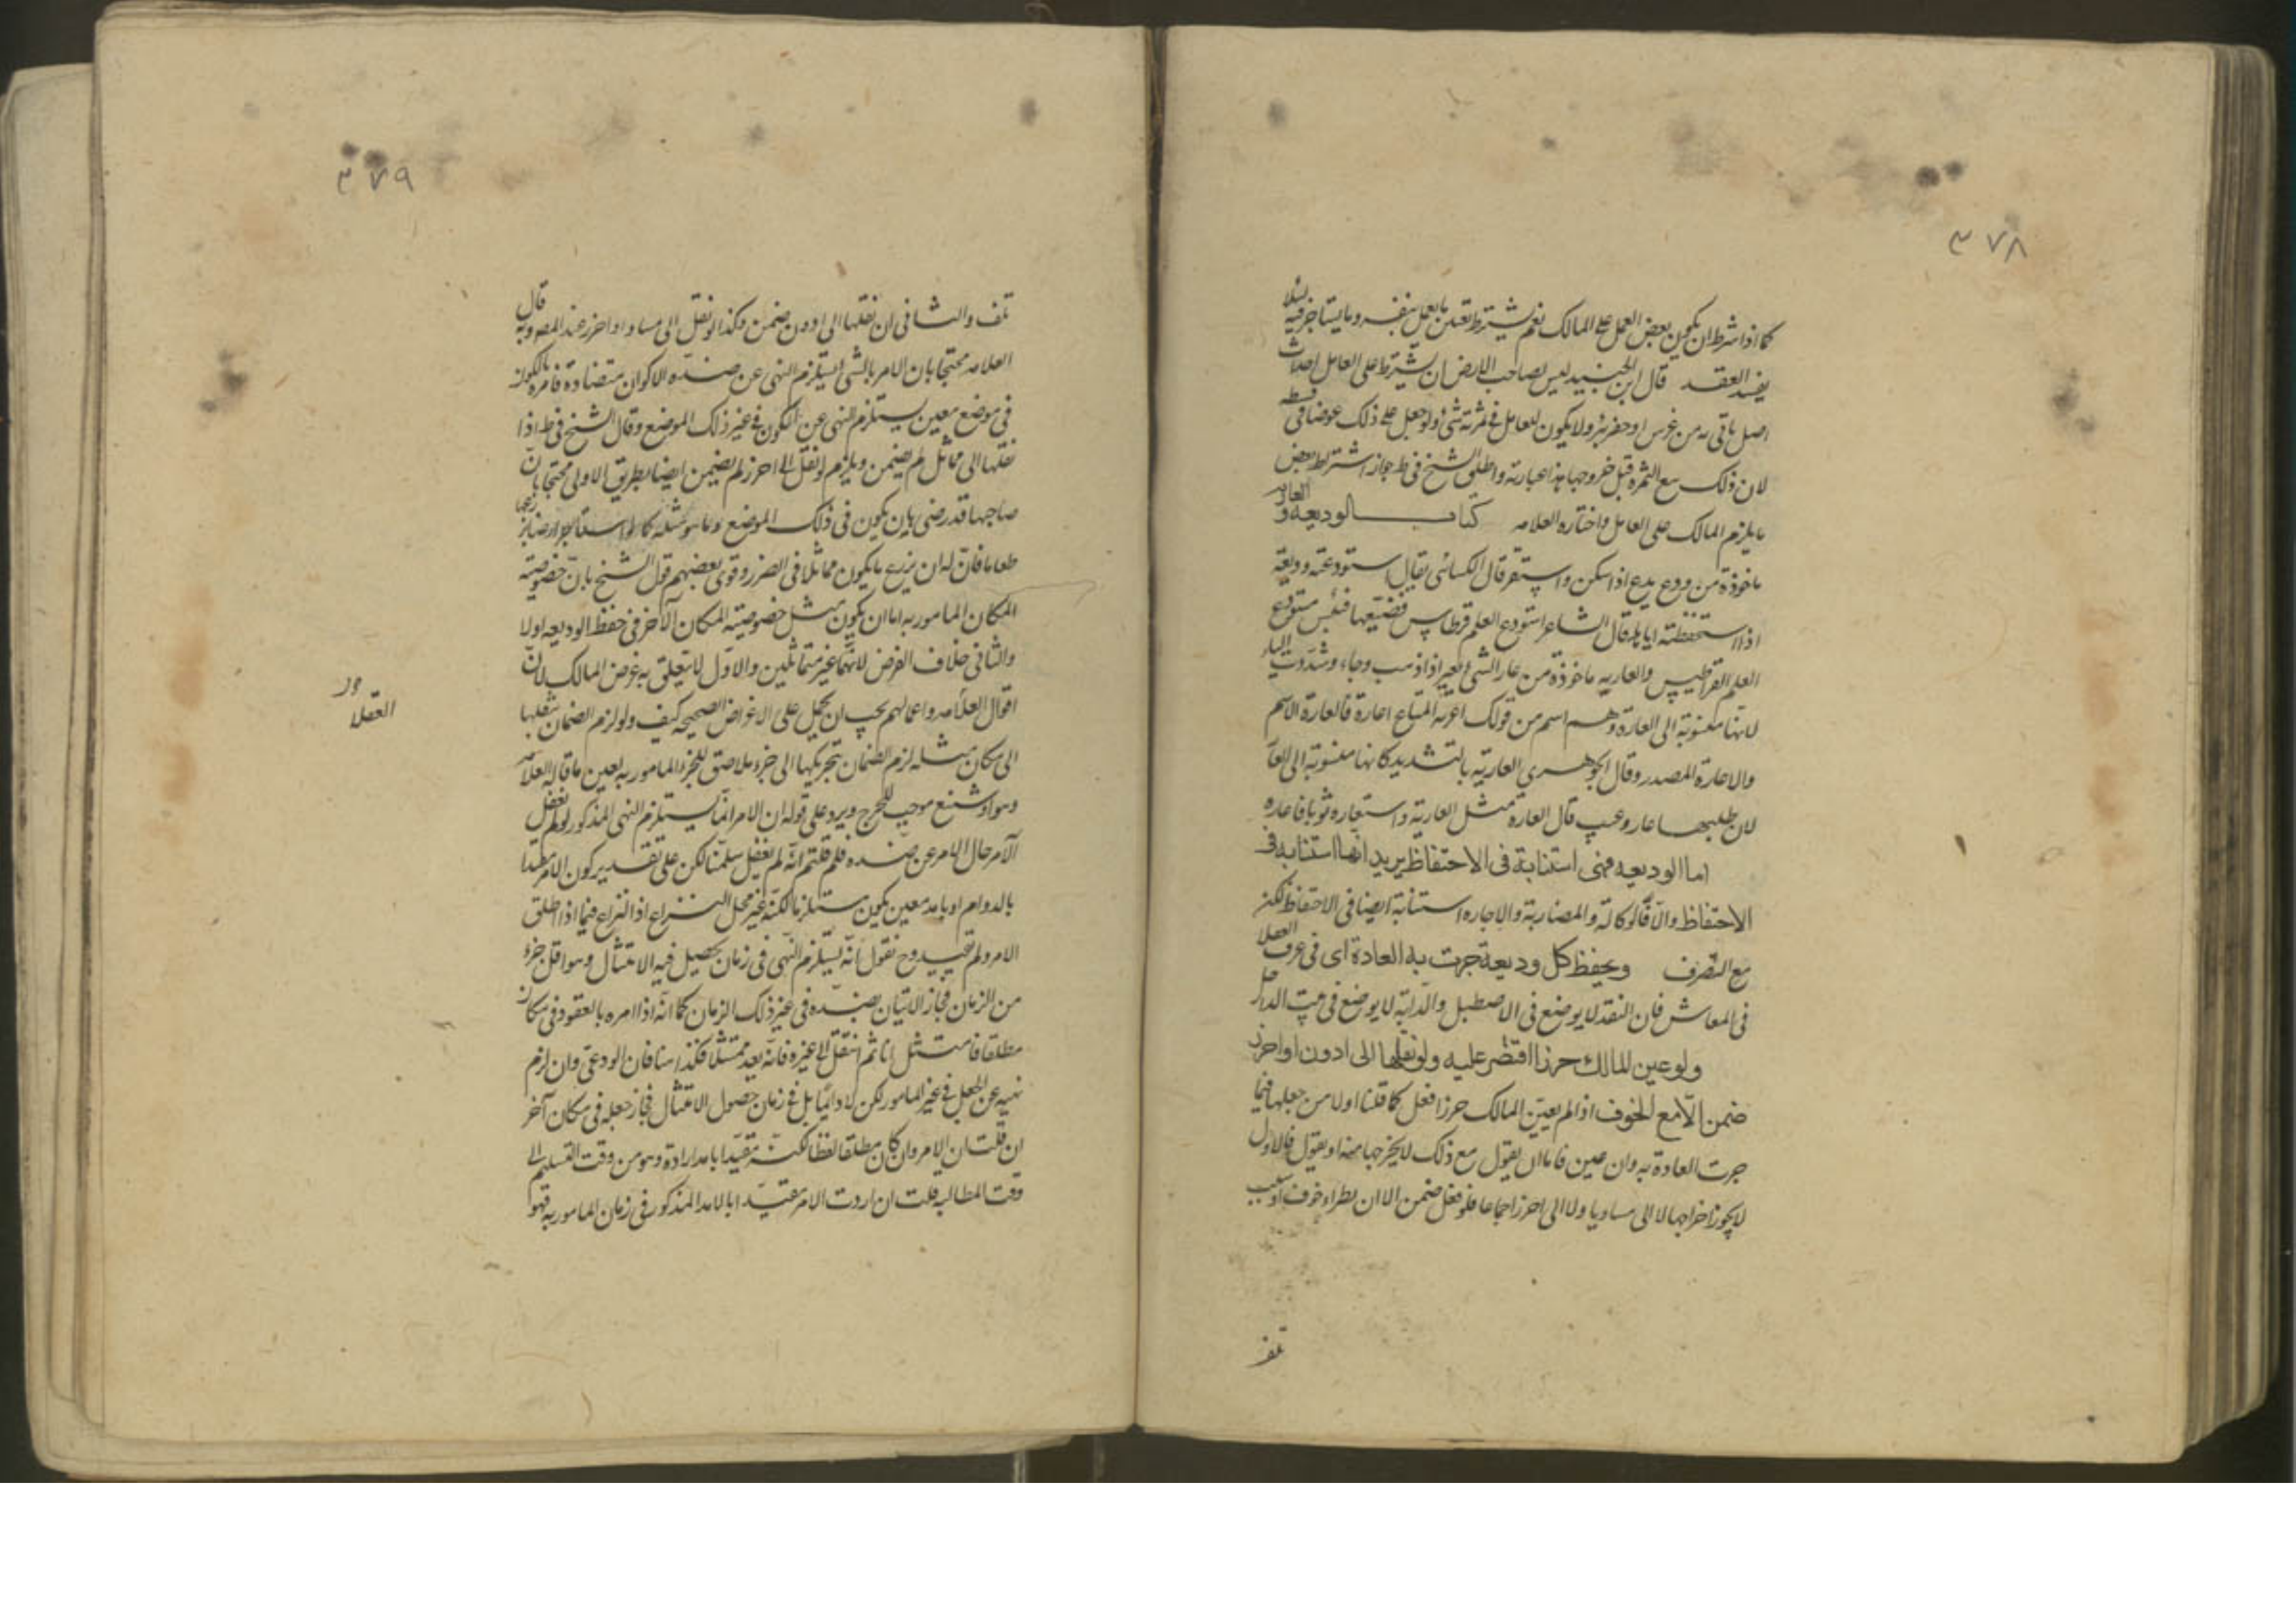 ٣٧٨
كما اذا شرط ان يكون بعض العمل على المالك نعم يشترط تعيين ما يعمل بنفسه وما يستاجر فيه لئلا
يفسد العقد قال ابن الجنيد ليس لصاحب الارض ان يشترط على العامل احداث
اصل باقى له من غرس او حفر بئر ولا يكون للعامل فى ثمرته شى ولو جعل على ذلك عوضا فى قسطه
لان ذلك بيع الثمرة قبل خروجها هذا عبارته واطلق الشيخ فى ط جواز اشتراط بعض
ما يلزم المالك على العامل واختاره العلامه كتاب الوديعه و العاريه
ماخوذة من ودع يدع اذا سكن واستقر قال الكسائى يقال استودعته وديعة
اذا استحفظته اياها قال الشاعر استودع العلم قرطاس فضيعها فبئس مستودع
العلم القراطيس والعاريه ماخوذة من عار الشى يعير اذا ذهب وجاء وشددت الياء
لانها منسوبة الى العارة وهى اسم من قولك اعرته المتاع اعارة فالعارة الاسم
والاعارة المصدر وقال الجوهرى العارية بالتشديد كانها منسوبة الى العار
لان طلبها عار وعيب قال العارة مثل العارية واستعاره ثوبا فاعاره
اما الوديعه فهى استنابة فى الاحتفاظ يريد انها استنابه فى
الاحتفاظ والا فالوكالة والمضاربة والاجاره استنابة ايضا فى الاحتفاظ لكن
مع التصرف ويحفظ كل وديعة جرت به العادة اى فى عرف العقلا
فى المعاش فان النقد لا يوضع فى الاصطبل والدابة لا يوضع فى بيت الداخل
ولو عين المالك حرزا اقتصر عليه ولو نقلها الى ادون او احرز
ضمن الا مع الخوف اذا لم يعين المالك حرزا فعل كما قلنا اولا من جعلها فيما
جرت العادة به وان عين فاما ان يقول مع ذلك لا يخرجها منه او يقول فالاول
لا يجوز اخراجها لا الى مساويا ولا الى احرز اجماعا فلو فعل ضمن الا ان يطراء خوف او سبب
تلف
٣٧٩
تلف والثانى ان نقلها الى ادون ضمن وكذا لو نقل الى مساو او احرز عند المص وبه قال
العلامه محتجا بان الامر بالشى يستلزم النهى عن ضده الاكوان متضادة فامره بالكون
فى موضع معين يستلزم النهى عن الكون فى غير ذلك الموضع وقال الشيخ فى ط اذا
نقلها الى مماثل لم يضمن ويلزم لو نقل الى احرز لم يضمن ايضا بطريق الاولى محتجا بان
صاحبها قد رضى بان يكون فى ذلك الموضع وما هو مثله كما لو استاجر ارضا يزرعها
طعاما فان له ان يزرع ما يكون مماثلا فى الضرر وقوى بعضهم قول الشيخ بان خصوصية
المكان المامور به اما ان يكون مثل خصوصية المكان الآخر فى حفظ الوديعه اولا
والثانى خلاف الفرض لانهما غير متماثلين والاول لا يتعلق به غرض المالك لان
اقوال العلامه واعمالهم يجب ان يحمل على الاغراض الصحيحه كيف ولو لزم الضمان بنقلها
الى مكان مثله لزم الضمان بتحريكها الى جزء ملاصق للجزء المامور به بعين ما قاله العلامه
وهو اشنع موجب للحرج ويرد على قوله ان الامر انما يستلزم النهى المذكور لو لم يغفل
الآمر حال الامر عن ضده فلم قلتم انه لم يغفل سلمنا لكن على تقدير كون الامر مقيدا
بالدوام او بامد معين يكون مستلزما لكنه غير محل النزاع اذ النزاع فيما اذا اطلق
الامر ولم تقييد وح نقول انه يستلزم النهى فى زمان يحصل فيه الامتثال وهو اقل جزء
من الزمان فجاز الاتيان بضده فى غير ذلك الزمان كما انه اذا امره بالعقود فى مكان
مطلقا فامتثل انا ثم انتقل الى غيره فانه يعد ممتثلا فكذا هنا فان الودعى وان لزم
نهيه عن الجعل فى غير المامور لكن لا دائما بل فى زمان حصول الامتثال فجاز جعله فى مكان آخر
ان قلت ان الامر وان كان مطلقا لفظا لكنه مقيدا بامد ارادة وهو من وقت التسليم الى
وقت المطالبه قلت ان اردت الامر مقيدا بالامد المذكور فى زمان المامور به فهو
العقلا